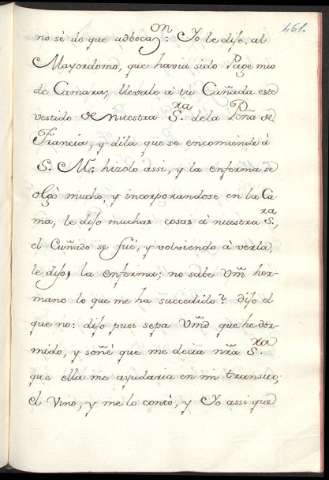 461.
no sè de que advocaz.on: Yo le dije, al
Mayordomo, que havia sido Page mio
de Camara, llevale à tu Cuñada este
vestido de nuestra S.ra de la Peña de
Francia, y dila que se encomiende à
S. M. hizolo assi, y la enferma se
olgò mucho, y incorporandose en la Ca
ma, le dijo muchas cosas à nuestra S.ra,
el Cuñado se fuè, y volviendo à verla,
le dijo, la enferma: no sabe Vm̃d her-
mano lo que me ha succedido? dijo el
que no: dijo pues sepa Vm̃d que he dor-
mido, y soñè que me decia nr̃a S.ra
que ella me ayudaria en mi
el vino, y me lo contò, y Yo assi que